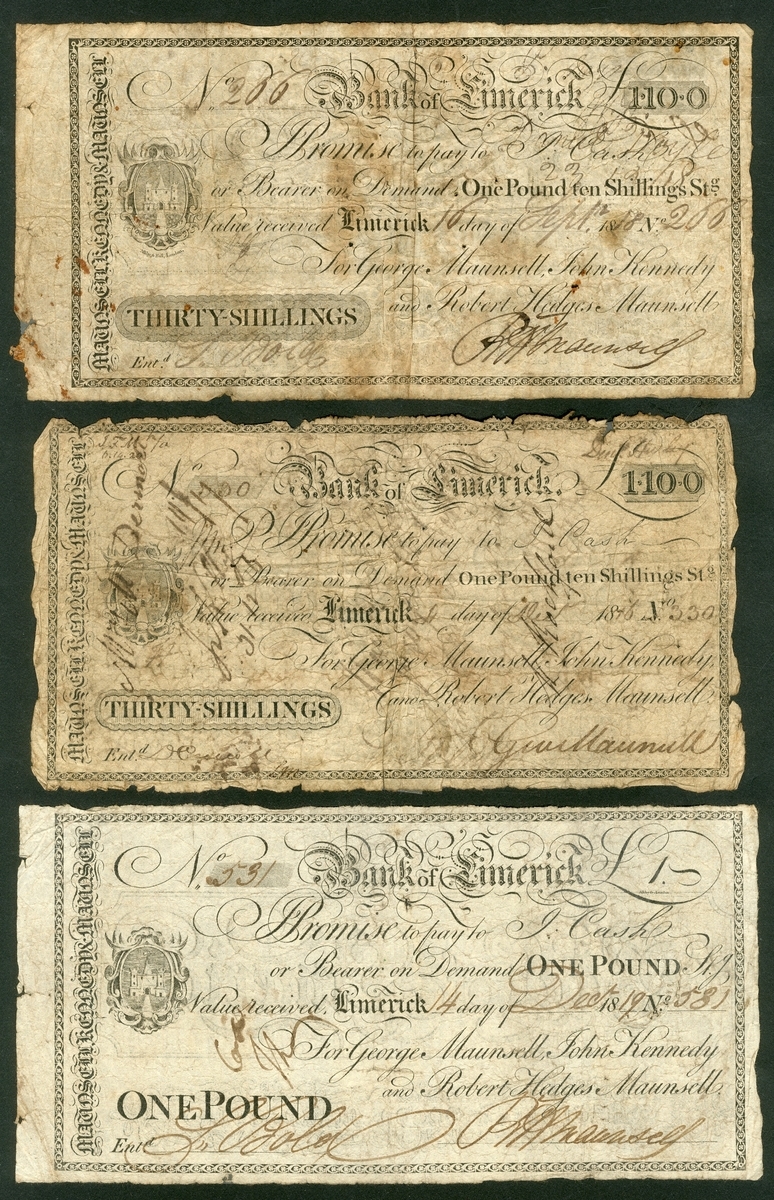 MAUNSELL, KENNEDY & MAUNSELL
No. 266 Bank of Limerick £1·10·0
I Promise to pay to J. Cash
or Bearer on Demand, One Pound ten Shillings Stg
Value received Limerick 16 day of Septr. 1818 No. 266
For George Maunsell, John Kennedy
and Robert Hedges Maunsell
THIRTY-SHILLINGS
Entd.
R H Maunsell
MAUNSELL, KENNEDY & MAUNSELL
No. 330 Bank of Limerick. £1·10·0
I Promise to pay to J. Cash
or Bearer on Demand One Pound ten Shillings Stg
Value received Limerick day of 1816 No. 330
For George Maunsell, John Kennedy,
and Robert Hedges Maunsell
THIRTY-SHILLINGS
Entd.
Geo Maunsell
MAUNSELL, KENNEDY & MAUNSELL
No. 531 Bank of Limerick £1.–
I Promise to pay to J. Cash
or Bearer on Demand ONE POUND Stg
Value received, Limerick 14 day of Decr 1819 No. 531
For George Maunsell, John Kennedy
and Robert Hedges Maunsell.
ONE POUND
Entd.
R H Maunsell